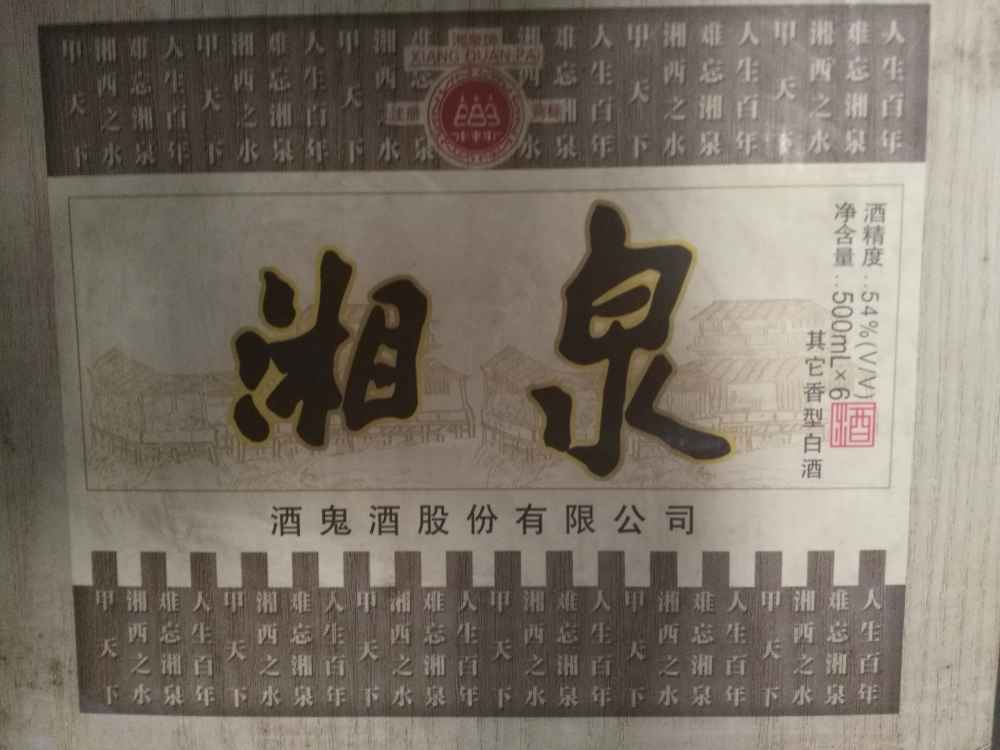 人生百年
难忘湘泉
湘西之水
甲天下
人生百年
难忘湘泉
湘西之水
甲天下
人生百年
难忘湘泉
湘西之水
XIANG QUAN PAI
注册
难忘湘泉
湘西之水
甲天下
人生百年
难忘湘泉
湘西之水
甲天下
人生百年
难忘湘泉
湘西之水
甲天下
湘泉
酒精度:54%(V/V)
净含量:500mL×6
其它香型白酒
酒
酒鬼酒股份有限公司
人生百年
难忘湘泉
湘西之水
甲天下
人生百年
难忘湘泉
湘西之水
甲天下
人生百年
难忘湘泉
湘西之水
甲天下
人生百年
难忘湘泉
湘西之水
甲天下
人生百年
难忘湘泉
湘西之水
甲天下
人生百年
难忘湘泉
湘西之水
甲天下